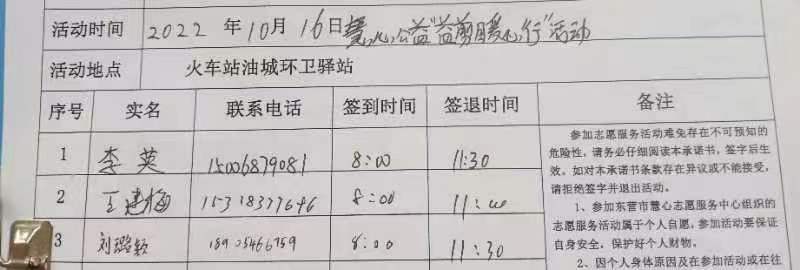 活动时间 2022 年 10月 16日 慧心公益"益剪暖心行"活动
活动地点 火车站油城环卫驿站
序号 实名 联系电话 签到时间 签退时间 备注
1 李英 15006879081 8:00 11:30
2 王建梅 8:00
3 刘璐颖 8:00 11:30
参加志愿服务活动难免存在不可预知的
危险性,请务必仔细阅读本承诺书,签字后生
效。如对本承诺书条款存在异议或不能接受,
请拒绝签字并退出活动。
1、参加东营市慧心志愿服务中心组织的
志愿服务活动属于个人自愿,参加活动要保证
自身安全,保护好个人财物。
2、因个人身体原因及在参加活动或在往